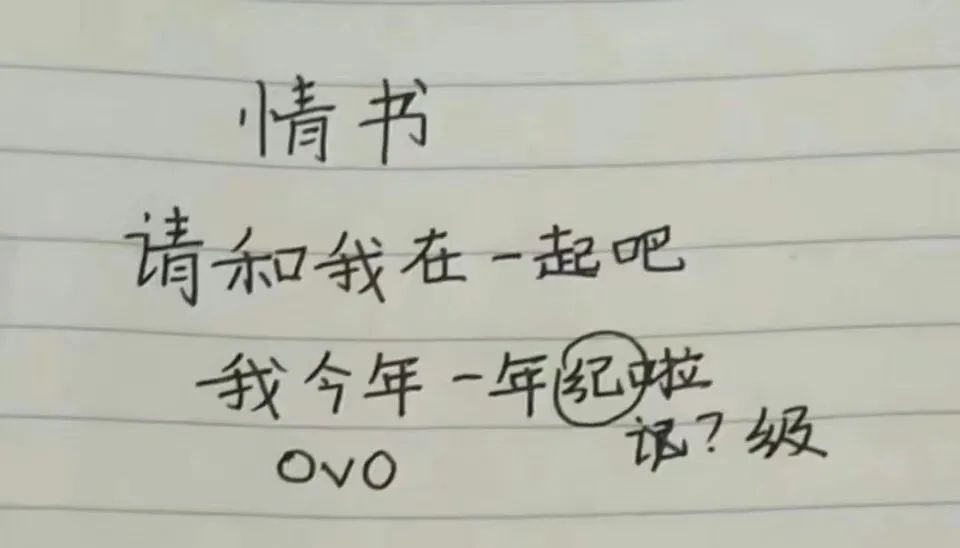 情书
请和我在一起吧
我今年一年纪啦
记?级
OvO